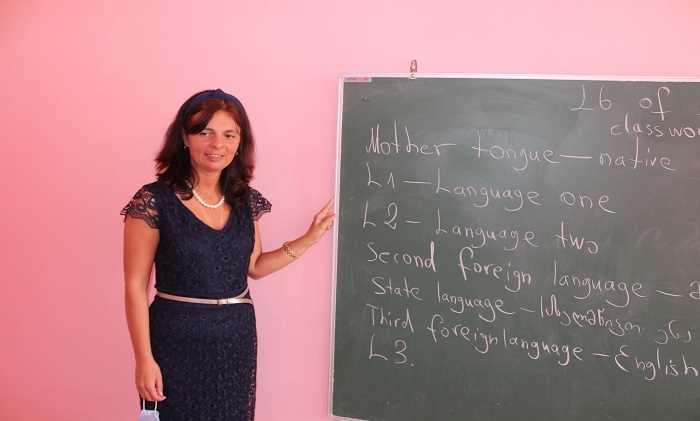 L6 of
classwo
Mother tongue — native
L1 — Language one
L2 – Language two
Second foreign language –
State language – სახელმწიფო ენა
Third foreign language – English
L3.